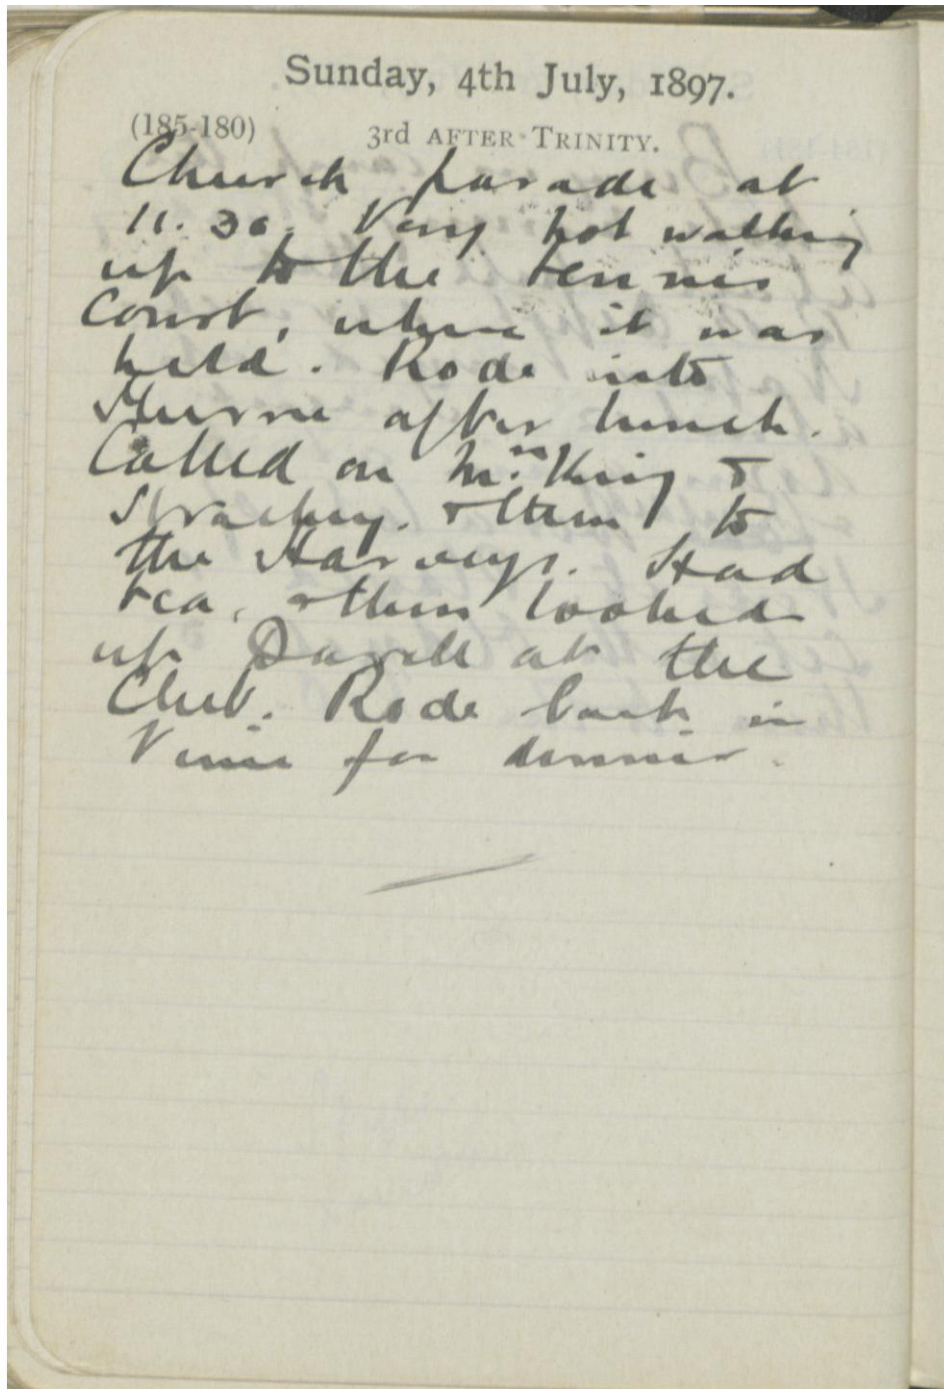 Sunday, 4th July, 1897.
(185-180) 3rd AFTER TRINITY.
Church parade at
11.30. Very hot walking
up to the tennis
Court, where it was
held. Rode into
Murree after lunch.
Called on Mrs. King &
Strachey. & then to
the Harveys. Had
tea, & then looked
up at the
Club. Rode back in
time for dinner.